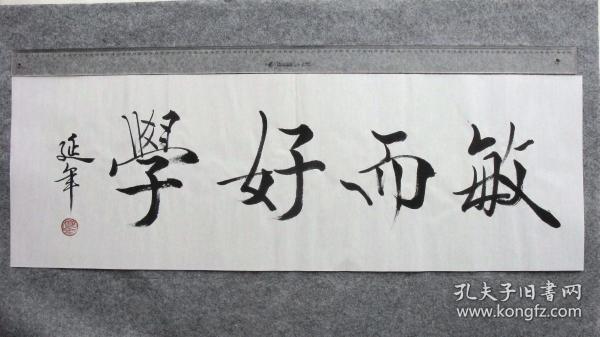 敏而好學
延年
孔夫子旧書网
www.kongfz.com